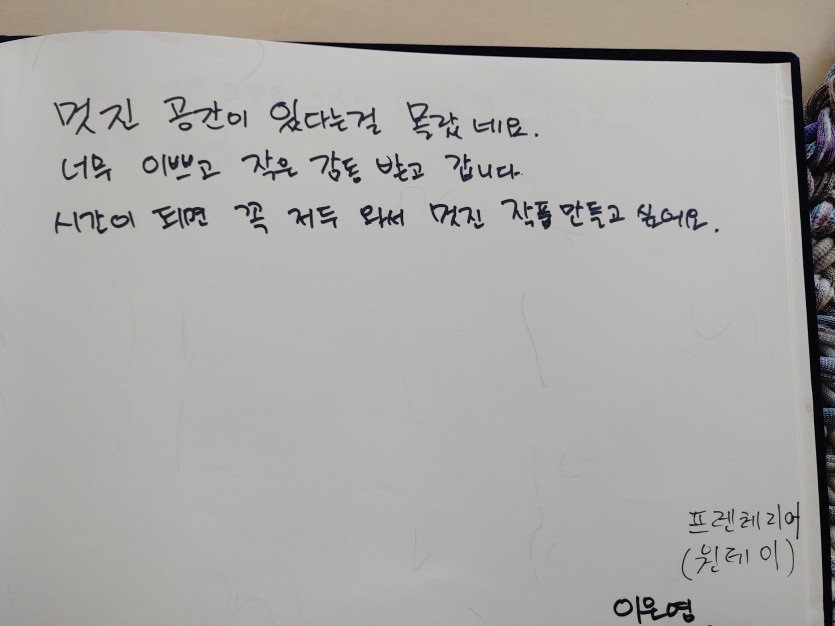 멋진 공간이 있다는걸 몰랐네요.
너무 이쁘고 작은 감동 받고 갑니다.
시간이 되면 꼭 저두 와서 멋진 작품 만들고 싶어요.
프렌테리어
(원데이)
이은영